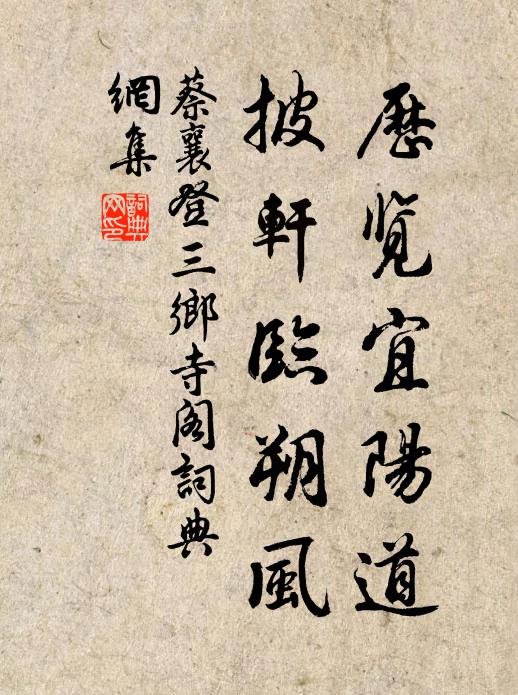 歷覽宜陽道
披軒臨朔風
蔡襄登三鄉寺閣詞典
網集
詞典
网印